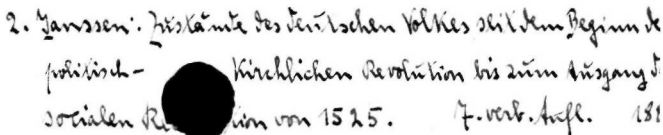 2. Janssen: Zustände des deutschen Volkes seit dem Beginn de
politisch- Kirchlichen Revolution bis zum Ausgang d
socialen Re tion von 1525. 7. verb. Aufl. 188